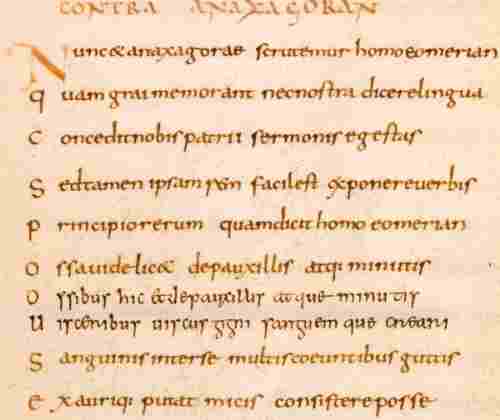 CONTRA ANAXAGORAN
Nunc & anaxagorae scrutemur homoeomerian
quam grai memorant nec nostra dicere lingua
Concedit nobis patrii sermonis egestas
Sed tamen ipsam rem facilest exponere verbis
Principiorerum quam dicit homoeomerian
ossa videlic& de pauxillis atqi minutis
ossibus hic et de pauxillis atque minutis
uisceribus uiscus gigni sanguemque creari
Sanguinis inter se multis coeuntibus guttis
Ex auriqi putat micis consistere posse